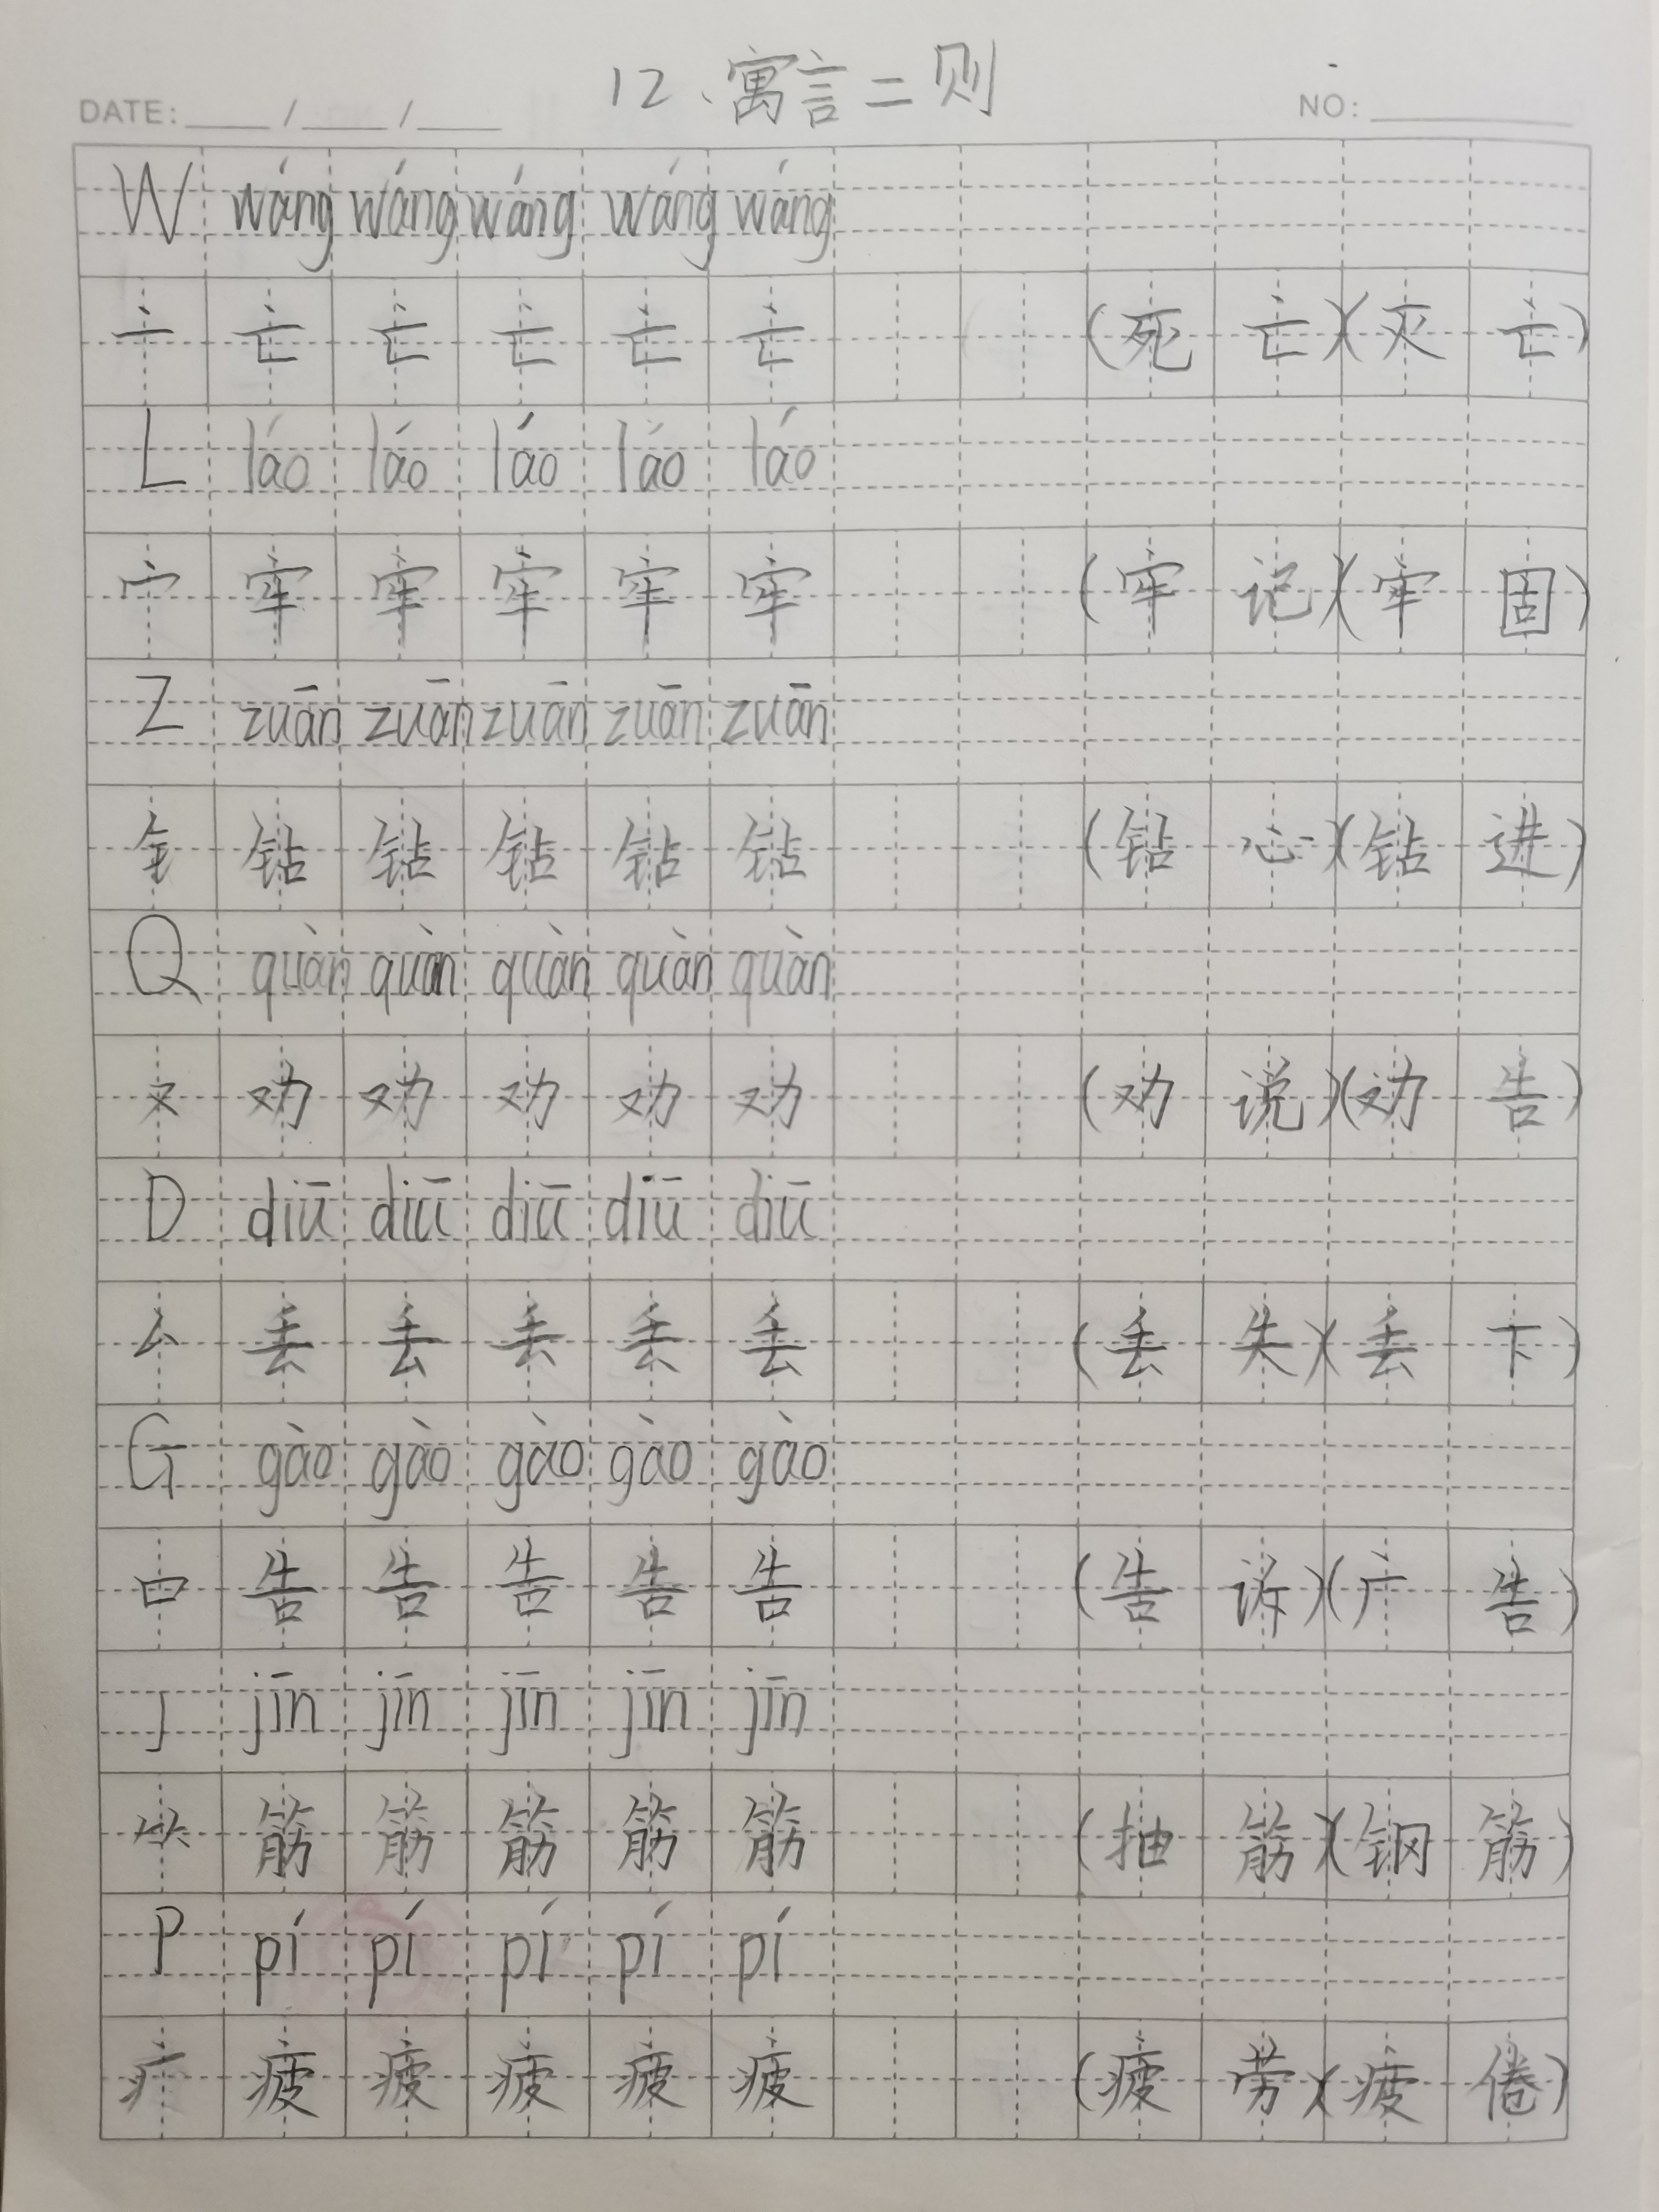 12、寓言二则
DATE: / / NO:
W wáng wáng wáng wáng wáng
亠 亡 亡 亡 亡 亡 (死亡)(灭亡)
L láo láo láo láo láo
宀 牢 牢 牢 牢 牢 (牢记)(牢固)
Z zuān zuān zuān zuān zuān
钅 钻 钻 钻 钻 钻 (钻心)(钻进)
Q quàn quàn quàn quàn quàn
又 劝 劝 劝 劝 劝 (劝说)(劝告)
D diū diū diū diū diū
厶 丢 丢 丢 丢 丢 (丢失)(丢下)
G gào gào gào gào gào
口 告 告 告 告 告 (告诉)(广告)
J jīn jīn jīn jīn jīn
⺮ 筋 筋 筋 筋 筋 (抽筋)(钢筋)
P pí pí pí pí pí
疒 疲 疲 疲 疲 疲 (疲劳)(疲倦)